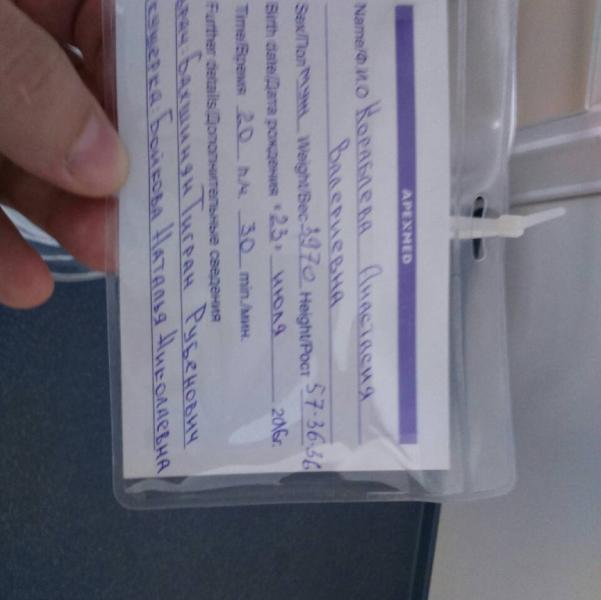 APEXMED
Name/ФИО Кораблева Анастасия
Валериевна
Sex/Пол муж Weight/Вес 3970 Height/Рост 57-36-36
Birth date/Дата рождения "23" июля 2016г.
Time/Время 20 h./ч. 30 min./мин.
Further details/Дополнительные сведения
врач: Бакшинян Тигран Рубенович
Бойкова Наталья Николаевна